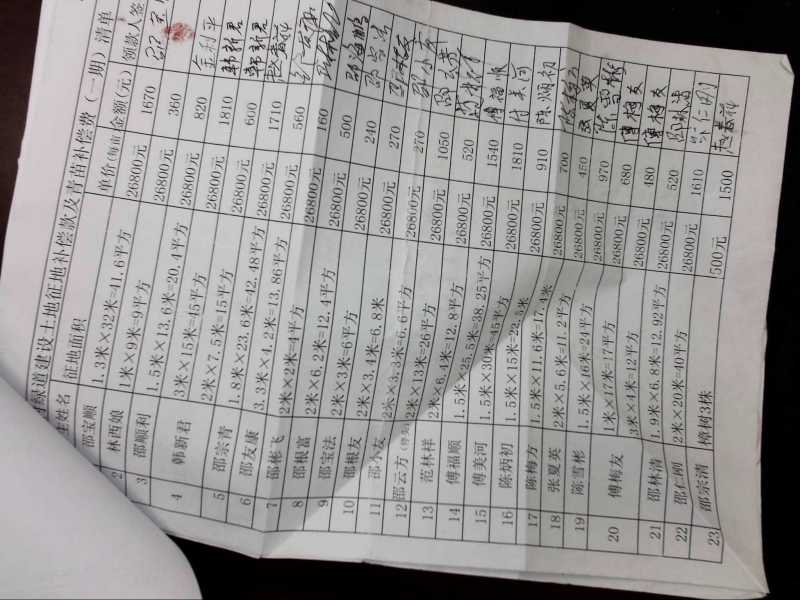 绿道建设土地征地补偿款及青苗补偿费（一期）清单
姓名 征地面积 单价(每亩) 金额(元) 领款人签
邵宝顺 1.3米×32米=41.6平方 26800元 1670
2 林西娘 1米×9米=9平方 26800元 360
3 邵顺利 1.5米×13.6米=20.4平方 26800元 820 金利平
4 韩新君 3米×15米=45平方 26800元 1810 韩新君
2米×7.5米=15平方 26800元 600 韩新君
5 邵宗清 1.8米×23.6米=42.48平方 26800元 1710
6 邵友康 3.3米×4.2米=13.86平方 26800元 560
7 邵彬飞 2米×2米=4平方 26800元 160
8 邵根富 2米×6.2米=12.4平方 26800元 500
9 邵宝法 2米×3米=6平方 26800元 240
10 邵根友 2米×3.4米=6.8米 26800元 270
11 邵小友 2米×3.3米=6.6平方 26800元 270
12 邵云方 2米×13米=26平方 26800元 1050
13 范林样 2米×6.4米=12.8平方 26800元 520
14 傅福顺 1.5米×25.5米=38.25平方 26800元 1540 傅福顺
15 傅美河 1.5米×30米=45平方 26800元 1810
16 陈炳初 1.5米×15米=22.5米 26800元 910 陈炳初
17 陈梅方 1.5米×11.6米=17.4米 26800元 700
18 张夏英 2米×5.6米=11.2平方 26800元 450
19 陈雪彬 1.5米×16米=24平方 26800元 970
20 傅梅友 1米×17米=17平方 26800元 680 傅梅友
3米×4米=12平方 26800元 480 傅梅友
21 邵林清 1.9米×6.8米=12.92平方 26800元 520
22 邵仁刚 2米×20米=40平方 26800元 1610
23 邵宗清 樟树3株 500元 1500